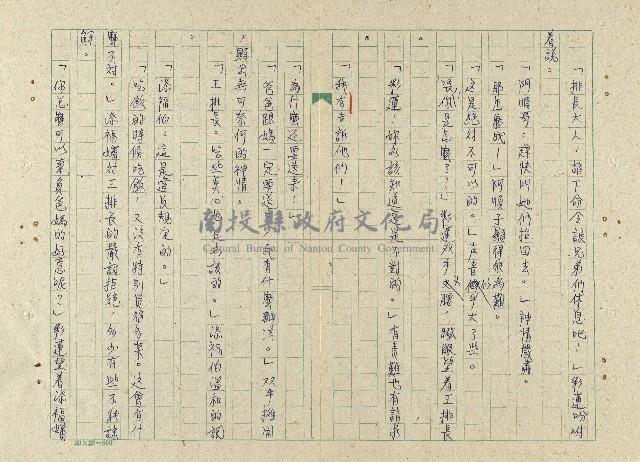 「排長大人！請下命令讓兄弟們休息吧！」彩蓮吩咐
着說。
「阿順哥：趕快叫她們抬回去。」神情嚴肅。
「那怎麼成！」阿順子顯得很為難。
「這是絕對不可以的。」声音似乎大了些。
「張俄是怎麼了？」彩蓮双手叉腰，瞪眼望着工排長
。
「彩蓮！妳應該知道這是不對的。」有責難也有請求
。
「我有告訴他們！」
「為什麼还要送來！」
「爸爸跟媽一定要送，我有什麼辦法。」双手攤開
，顯出無可奈何的神情。
「工排長：這些真的是應該的。」添福伯溫和的說
。
「添福伯：這是違反規定的。」
「吃飯的時候吃飯，又沒有特別買很多菜。這會有什
麼不対。」添福嬸対工排長的嚴詞拒絕，多少有些不能諒
解。
「你怎麼可以辜負爸媽的好意呢？」彩蓮望着添福嬸
南投縣政府文化局
Cultural Bureau of Nantou County Government
20×25=500